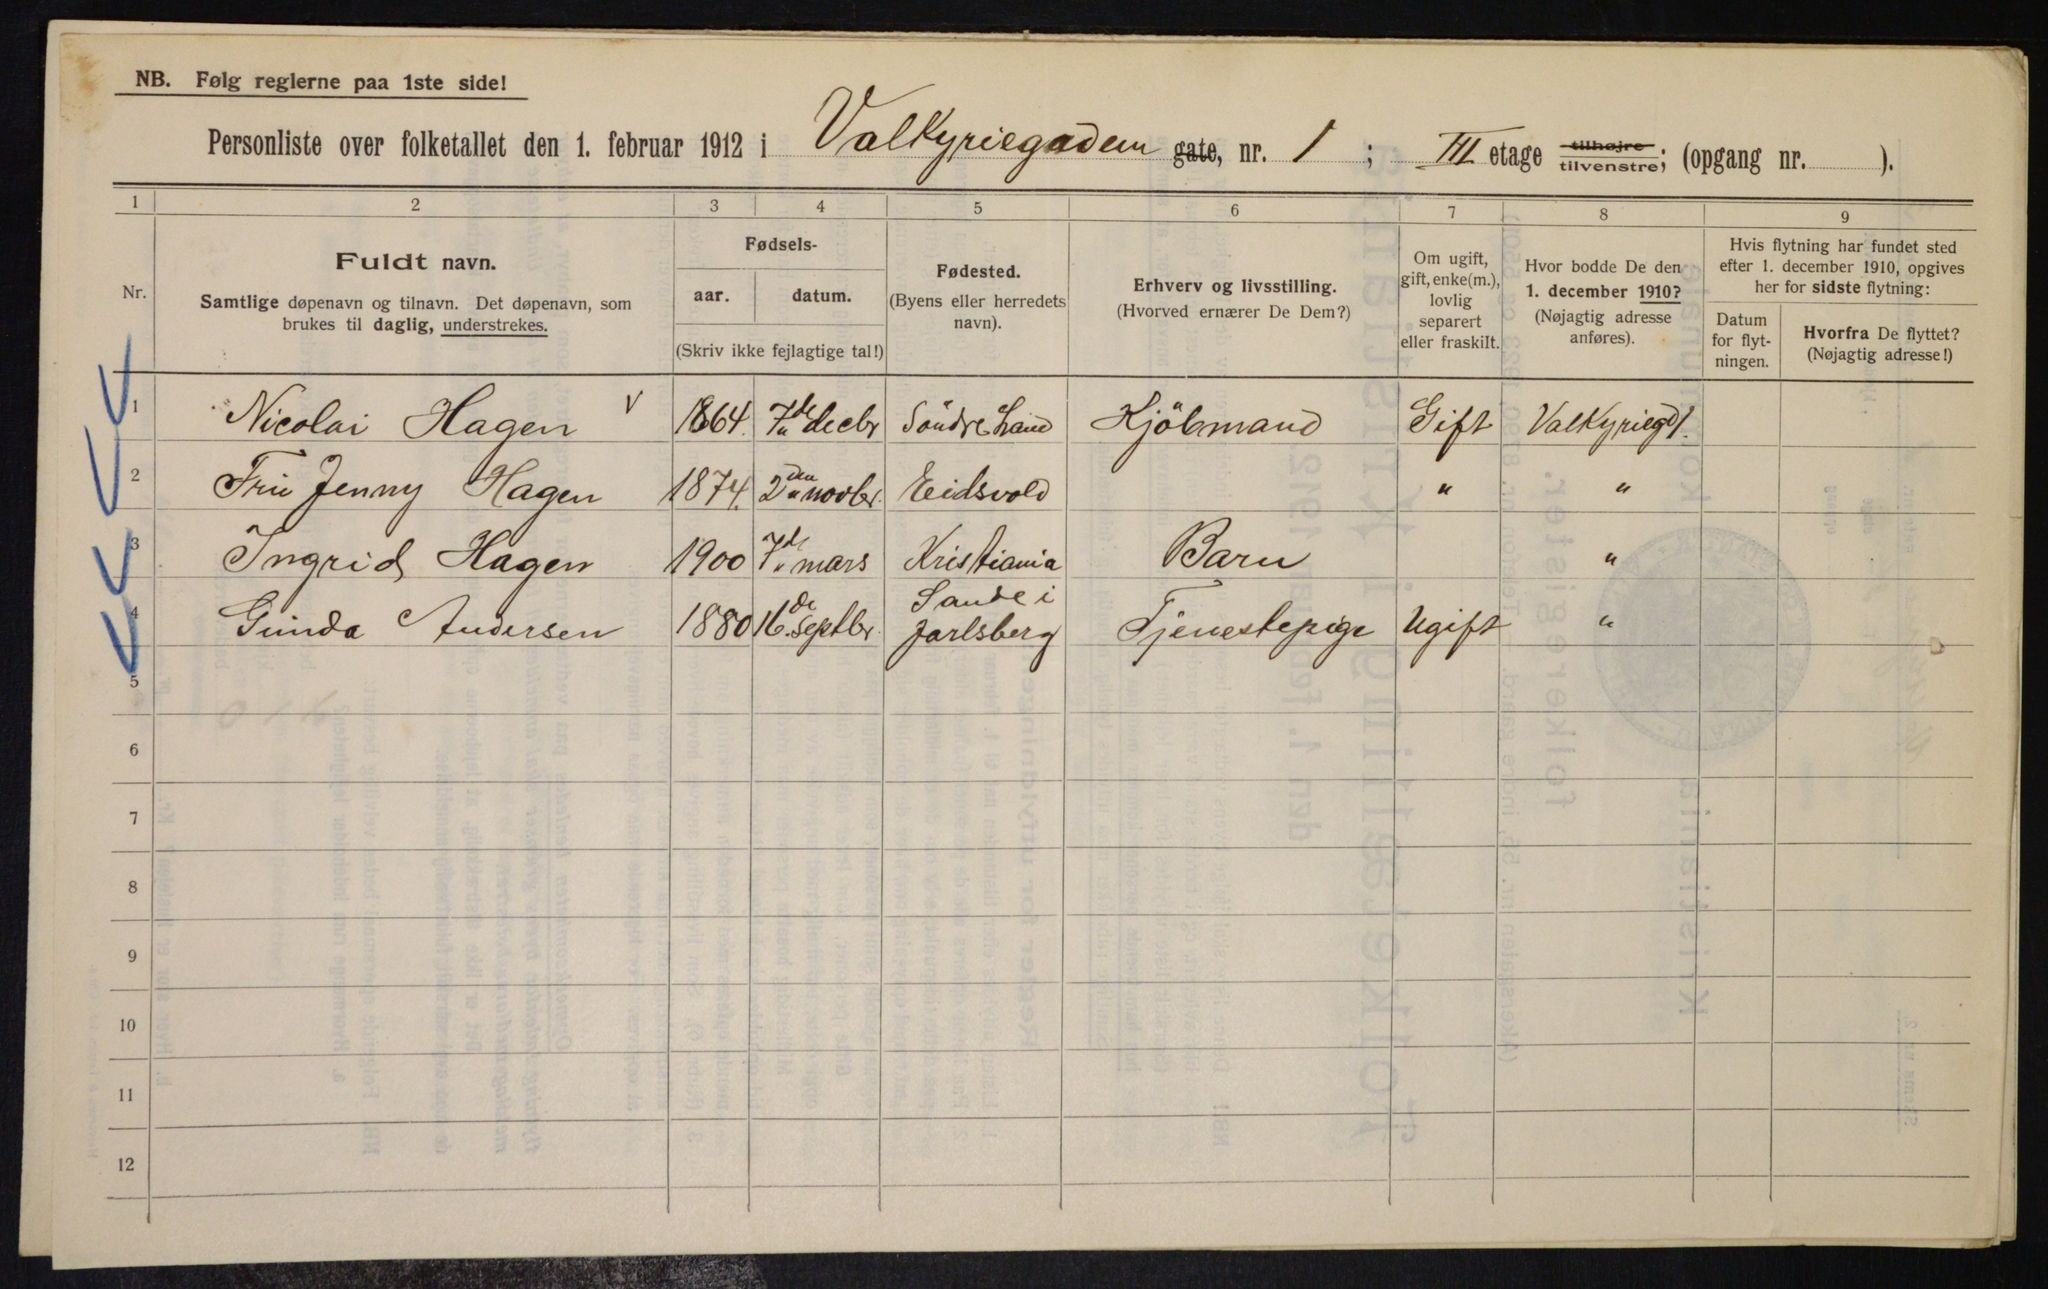 NB. Følg reglerne paa 1ste side!
Personliste over folketallet den 1. februar 1912 i Valkyriegaden gate, nr. 1 ; III etage tilhøjre tilvenstre; (opgang nr. ).
1 2 3 4 5 6 7 8 9
Nr.
Fuldt navn.
Samtlige døpenavn og tilnavn. Det døpenavn, som
brukes til daglig, understrekes.
Fødsels-
aar. datum.
(Skriv ikke fejlagtige tal!)
Fødested.
(Byens eller herredets
navn).
Erhverv og livsstilling.
(Hvorved ernærer De Dem?)
Om ugift,
gift, enke(m.),
lovlig
separert
eller fraskilt.
Hvor bodde De den
1. december 1910?
(Nøjagtig adresse
anføres).
Hvis flytning har fundet sted
efter 1. december 1910, opgives
her for sidste flytning:
Datum
for flyt-
ningen.
Hvorfra De flyttet?
(Nøjagtig adresse!)
1 Nicolai Hagen V 1864. 7de decbr Söndre Land Kjöbmand Gift Valkyriegd 1.
2 Fru Jenny Hagen 1874. 2den novbr. Eidsvold " "
3 Ingrid Hagen 1900 7de mars Kristiania Barn "
4 Gunda Andersen 1880 16.de Septbr. Sande i Jarlsberg Tjenestepige Ugift "
5
6
7
8
9
10
11
12